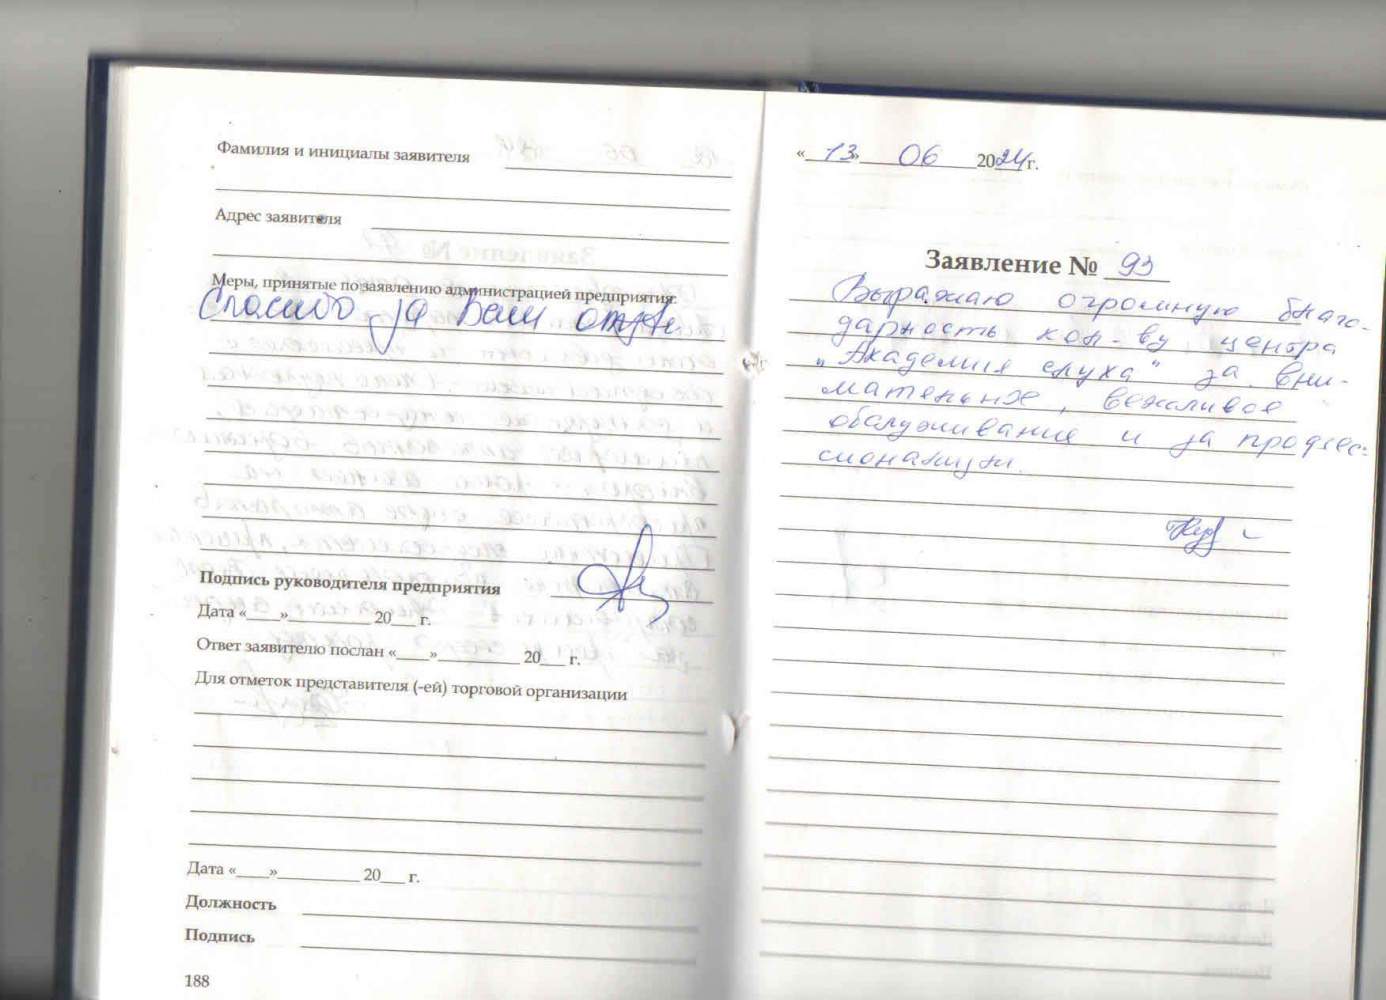 Фамилия и инициалы заявителя
Адрес заявителя
Меры, принятые по заявлению администрацией предприятия:
Спасибо за Ваш отзыв
Подпись руководителя предприятия
Дата «____»__________ 20___ г.
Ответ заявителю послан «____»__________ 20___ г.
Для отметок представителя (-ей) торговой организации
Дата «____»__________ 20___ г.
Должность
Подпись
188
«13» 06 2024г.
Заявление № 93
Выражаю огромную благо-
дарность кол-ву центра
"Академия слуха" за вни-
мательное, вежливое
обслуживания и за профес-
сионализм.